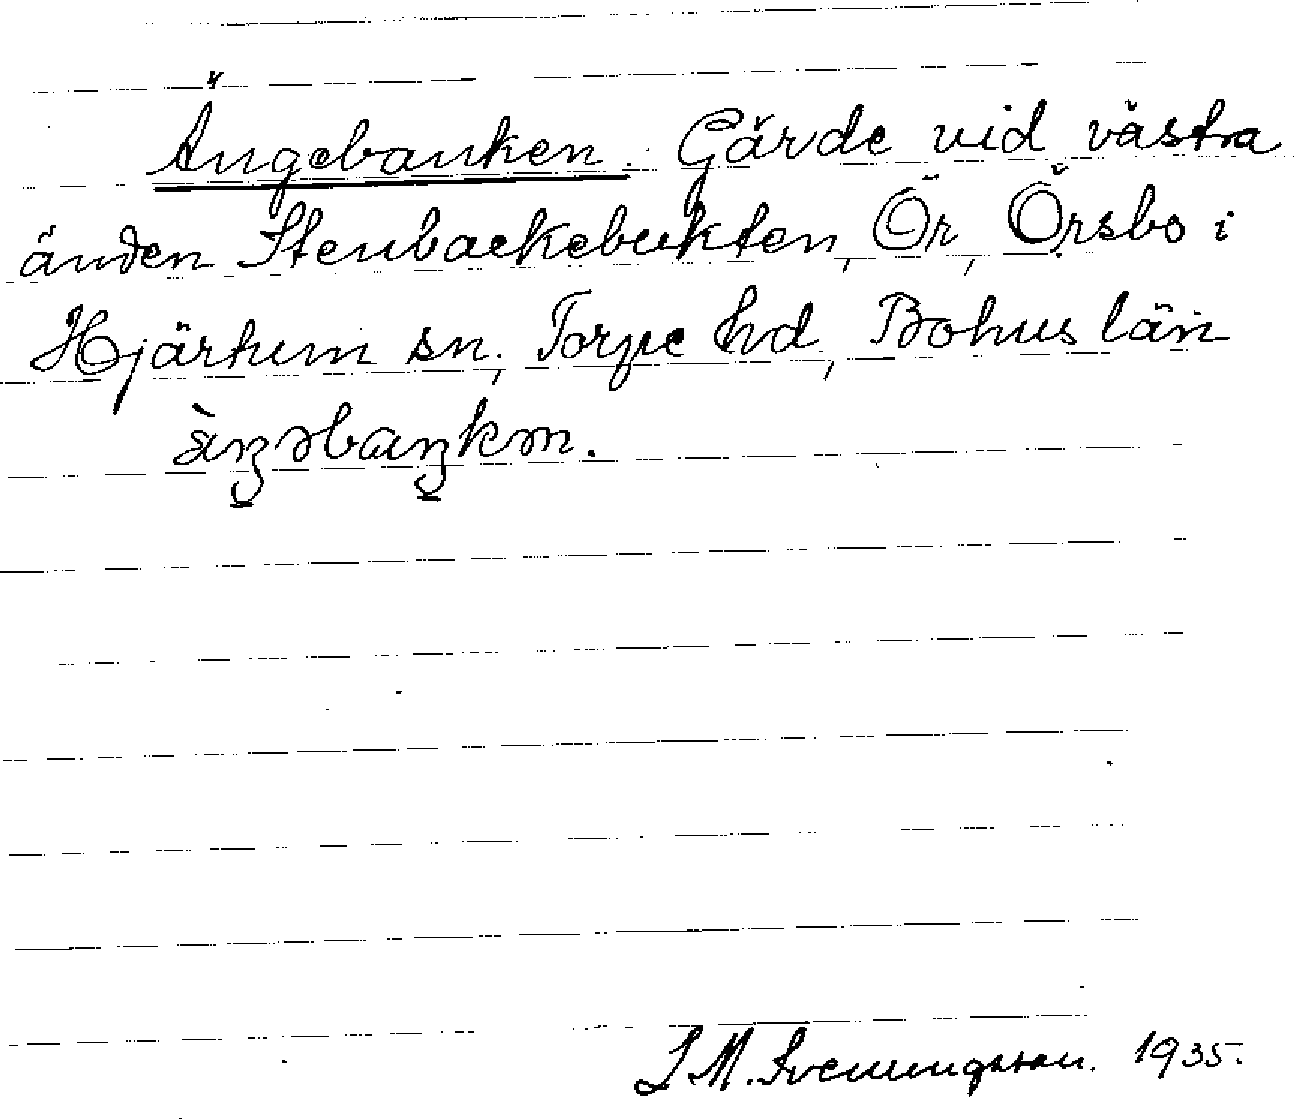 Ängebanken. Gärde vid västra
änden Stenbackebukten, Ör, Örsbo i
Hjärtum sn., Torpe hd, Bohuslän
àŋəbaŋkən.
J M. Svenningsson. 1935.